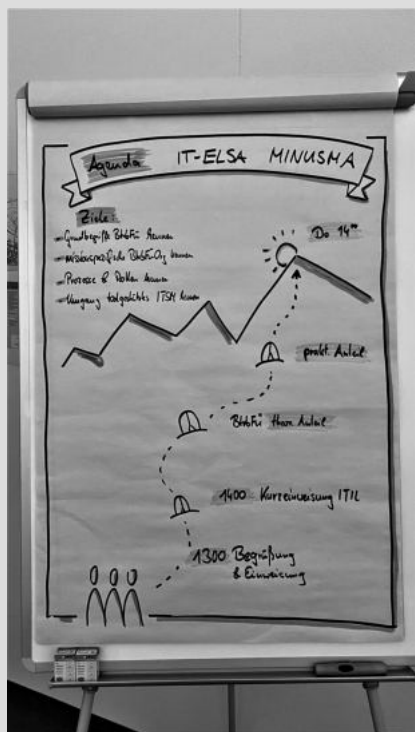 Agenda IT-ELSA MINUSMA
Ziele:
- Grundbegriffe BtrbFü kennen
- missionsspezifische BtrbFüOrg kennen
- Prozesse & Rollen kennen
- Umgang ITSM kennen
Do 14⁰⁰
prakt. Anteil
BtrbFü theor. Anteil
1400 Kurzeinweisung ITIL
1300 Begrüßung
& Einweisung